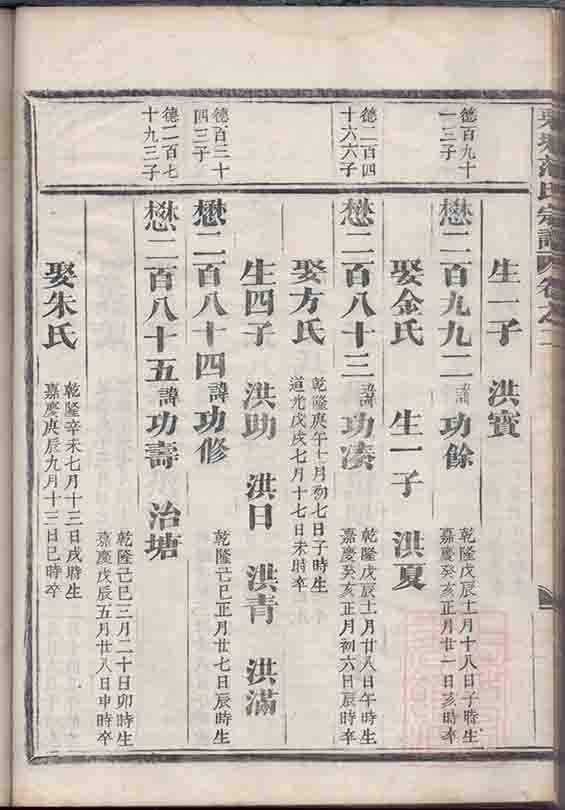 氏宗譜
生一子 洪寶
德百九十
一三子
懋二百九九二 諱功餘
乾隆戊辰十一月十八日子時生
嘉慶癸亥正月廿一日亥時卒
娶金氏 生一子 洪夏
德二百四
十六六子
懋二百八十三 諱功湊
乾隆戊辰十一月廿八日午時生
嘉慶癸亥正月初六日辰時卒
娶方氏
乾隆庚午十一月初七日子時生
道光戊戌七月十七日未時卒
生四子 洪助 洪日 洪青 洪滿
德百三十
四三子
懋二百八十四 諱功修
乾隆己巳正月廿七日辰時生
德二百七
十九三子
懋二百八十五 諱功壽 治塘
乾隆己巳三月二十日卯時生
嘉慶戊辰五月廿八日申時卒
娶朱氏
乾隆辛未七月十三日戌時生
嘉慶庚辰九月十三日巳時卒